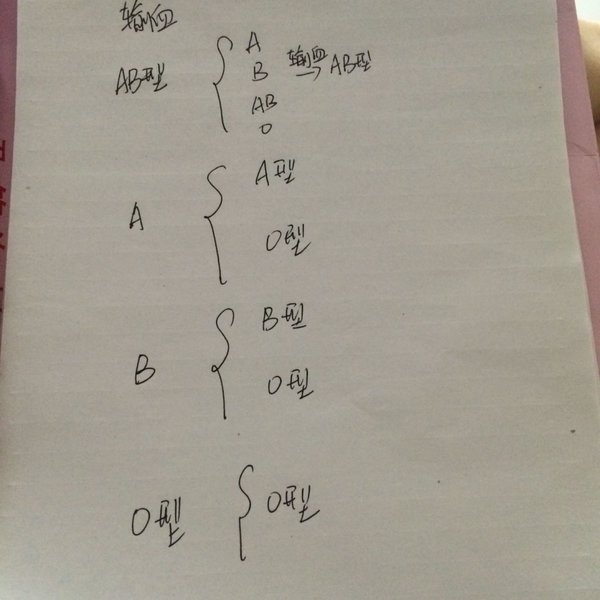 输血
AB型
A
B 输血 AB型
AB
O
A
A型
O型
B
B型
O型
O型
O型